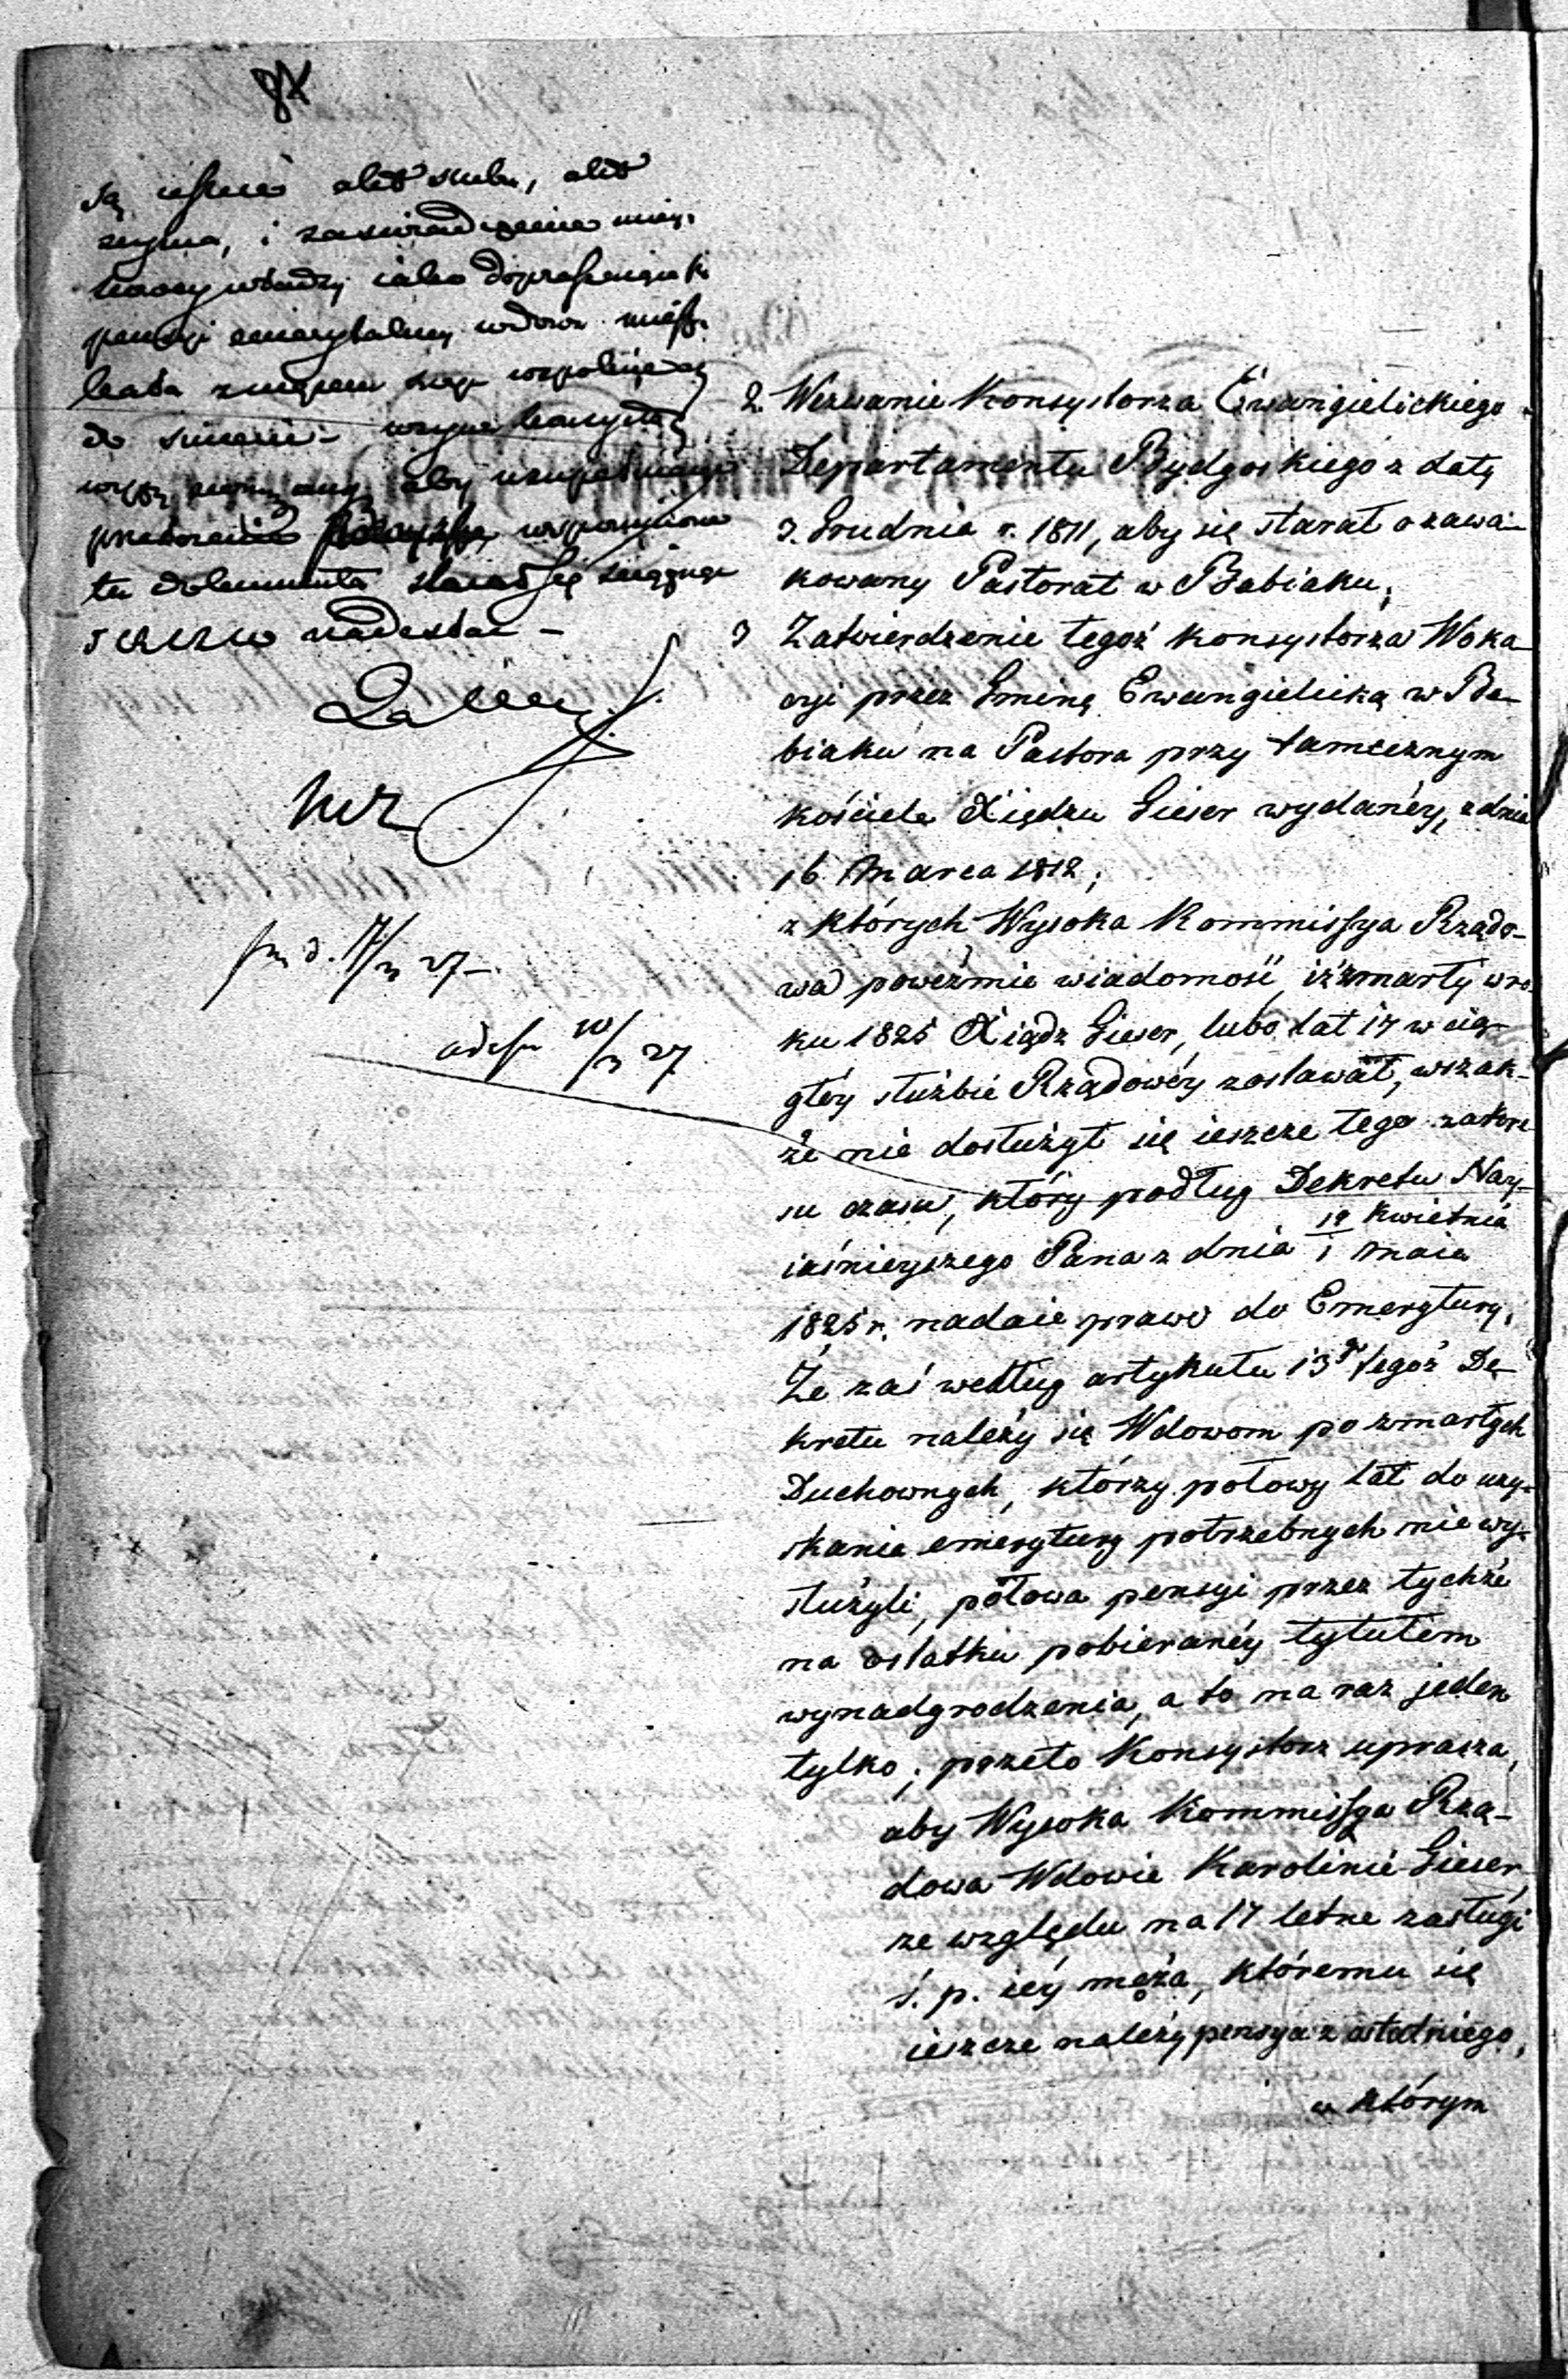 są ieszcze akt slubu, akt
zeyscia, i zaswiadczenie miey-
scowey władzy iako dopraszaiąca się
pensyi emerytalney wdowa miesz-
kała z mężem swym wspolnie aż
do smierci
aby uzupełniaiąc
wspomnione
tu dokumenta
nadesłać –
2. Wezwanie Konsystorza Ewangielickiego
Departamentu Bydgoskiego z datą
3. Grudnia r. 1811, aby się starał o zawa-
kowany Pastorat w Babiaku;
3 Zatwierdzenie tegoż Konsystorza Woka-
cyi przez Gminę Ewangielicką w Ba-
biaku na Pastora przy tamecznym
kościele Xiędzu Gieser wydanéy, z dnia
16 Marca 1812;
z których Wysoka Kommissya Rządo-
wa poweźmie wiadomość, iż zmarły w ro-
ku 1825 Xiądz Gieser, lubo lat 17 w cią-
głéy służbie Rządowéy zostawał, wszak-
że nie dosłużył się ieszcze tego zakre-
su czasu, który podług Dekretu Nay-
iaśnieyszego Pana z dnia 19/1 Kwietnia/Maia
1825 r. nadaie prawo do Emerytury,
Że zaś według artykułu 13go tegoż De-
kretu należy się Wdowom po zmarłych
Duchownych, którzy połowy lat do uzy-
skania emerytury potrzebnych nie wy-
służyli, połowa pensyi przez tychże
na ostatku pobieranéy tytułem
wynadgrodzenia, a to na raz jeden
tylko; przeto Konsystorz uprasza,
aby Wysoka Kommissya Rzą-
dowa Wdowie Karolinie Gieser,
ze względu na 17 letne zasługi
ś. p. iéy męża, któremu się
ieszcze należy pensya z ostatniego,
w którym